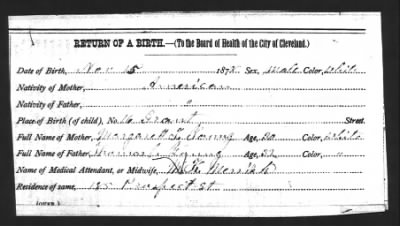 RETURN OF A BIRTH.—(To the Board of Health of the City of Cleveland.)
Date of Birth, Nov 15 187 Sex, Male Color, White
Nativity of Mother, American
Nativity of Father, "
Place of Birth (of child), No. 16 Grant Street.
Full Name of Mother, Margarett Young Age, Color, White
Full Name of Father, Young Age, 32 Color, "
Name of Medical Attendant, or Midwife,
Residence of same, 125 Prospect St
(OVER.)